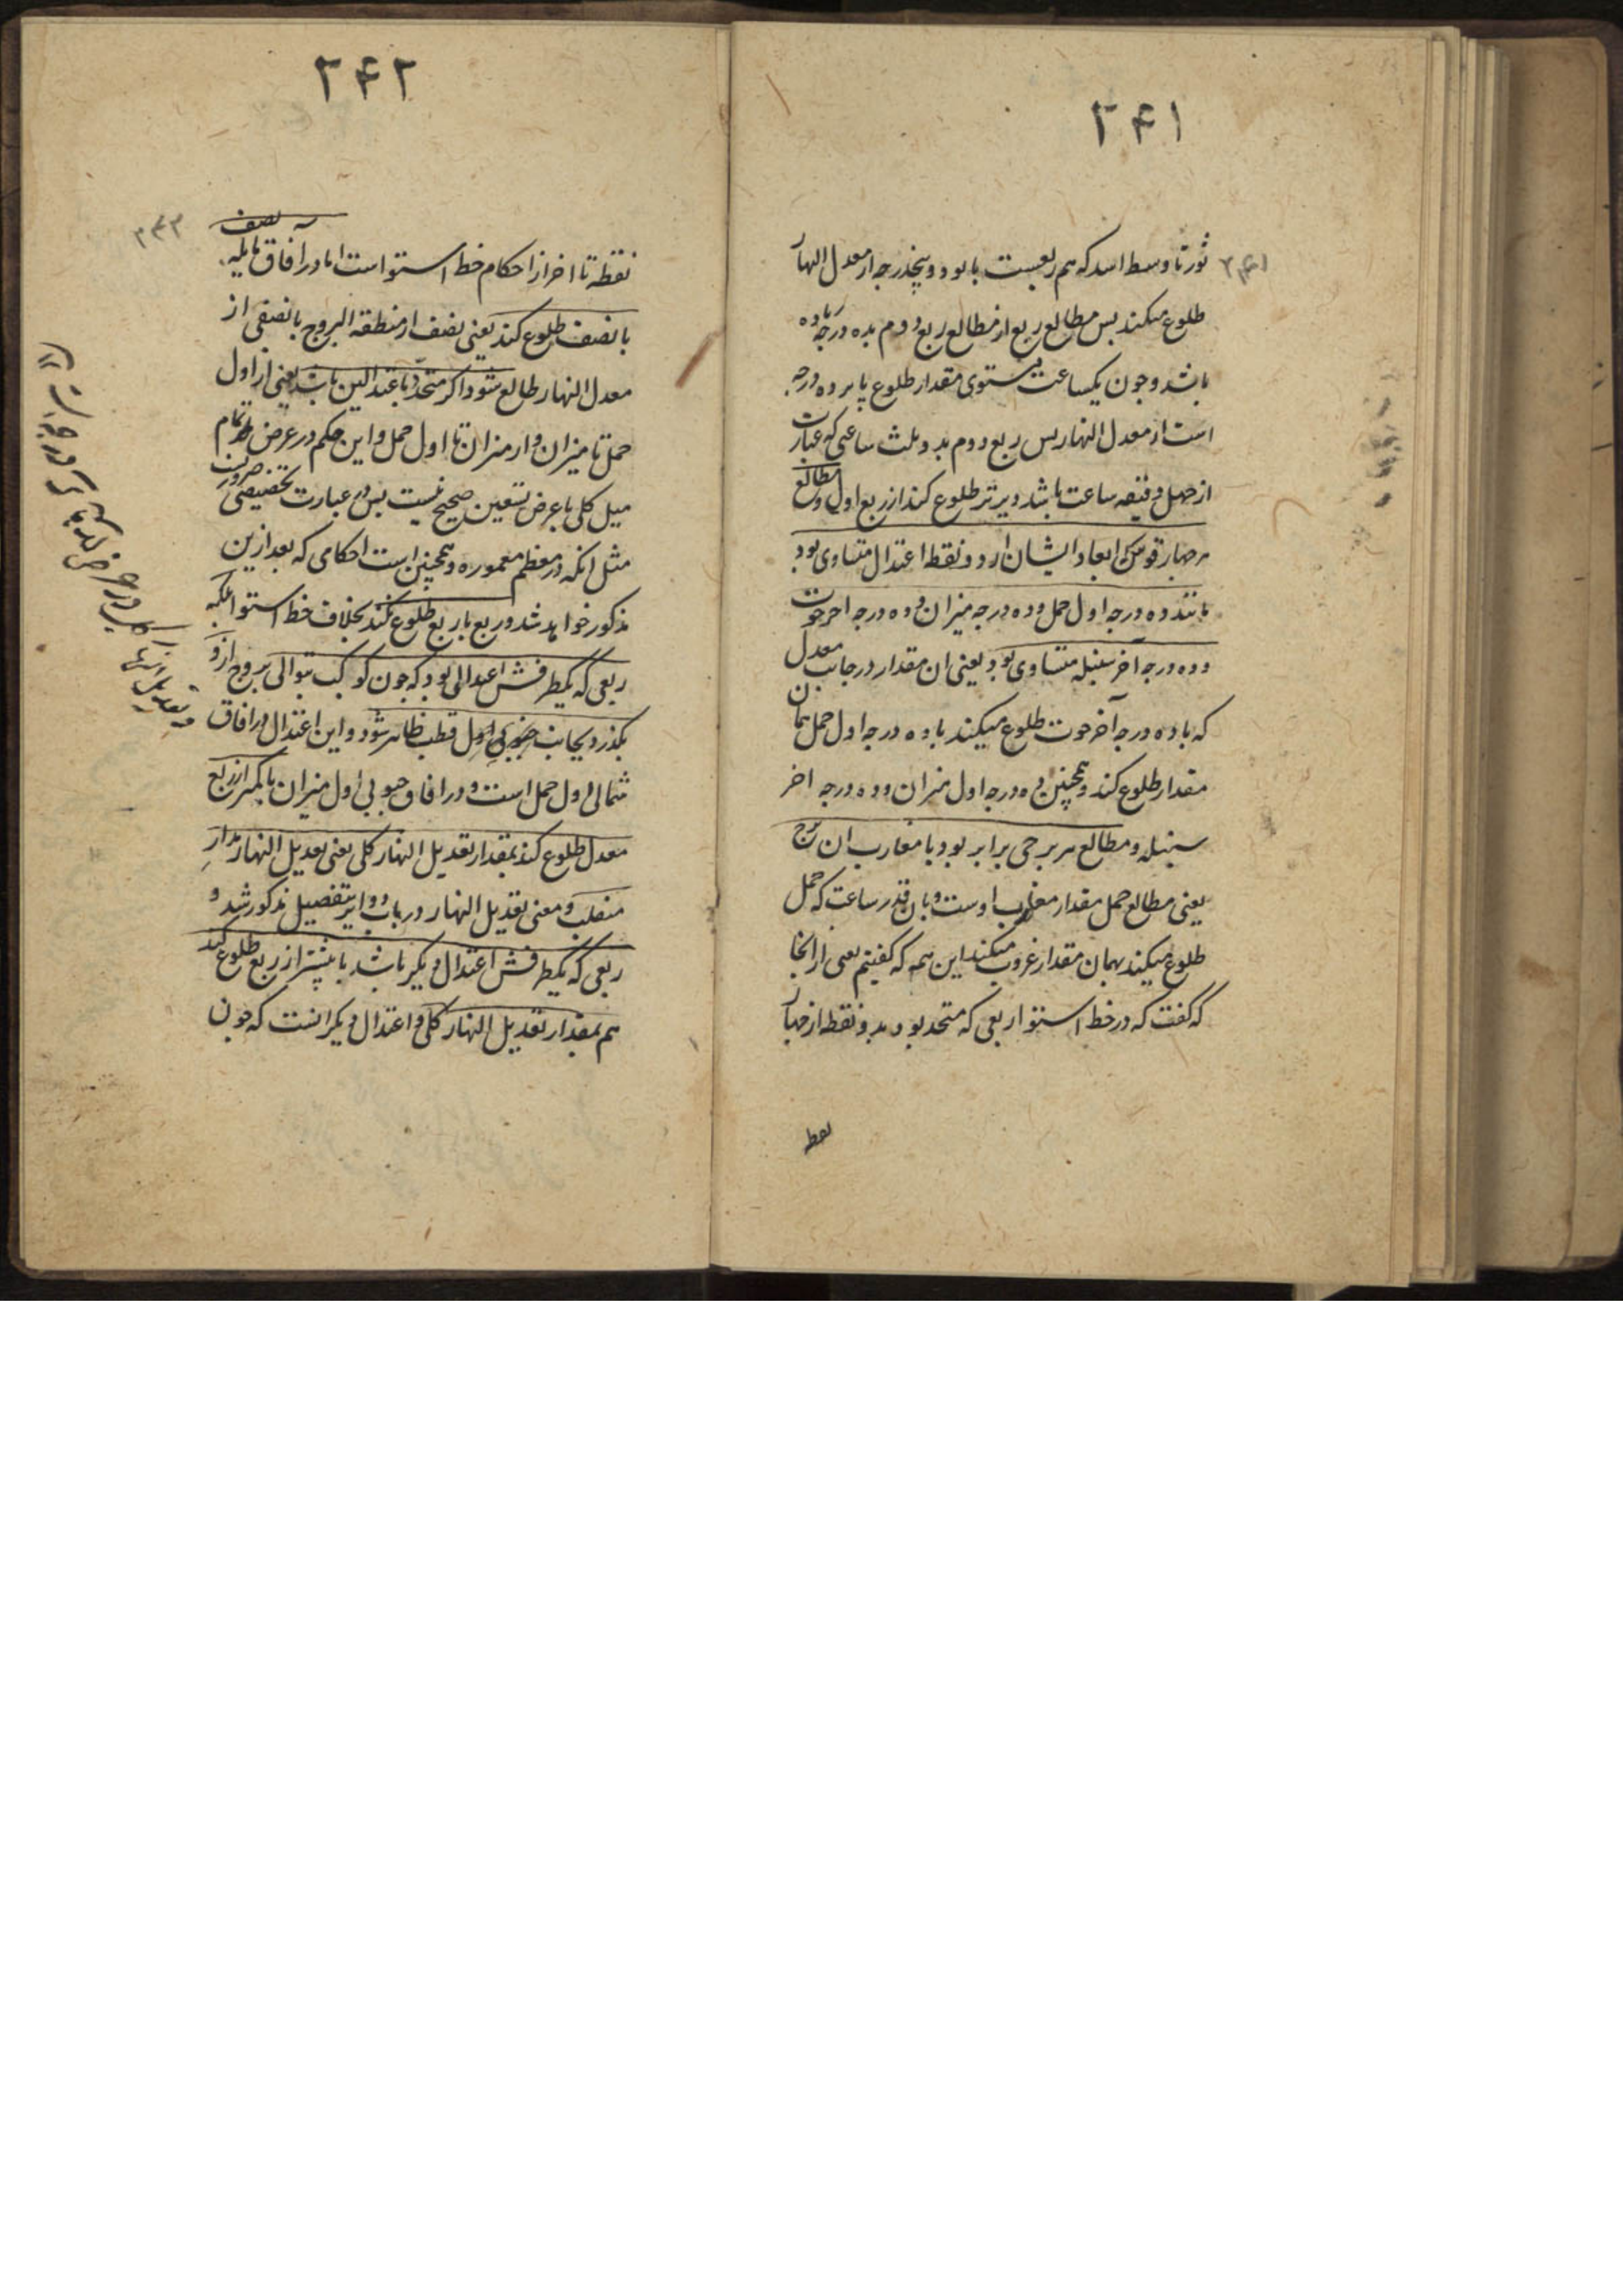 ۲۴۱
۲۴۱
ثور تا وسط اسد که هم ربعیست با نود و پنجدرجه از معدل النهار
طلوع میکند پس مطالع ربع از مطالع ربع دوم بده درجه زیاده
باشد و چون یکساعت مستوی مقدار طلوع پانزده درجه
است از معدل النهار پس ربع دوم بدو ثلث ساعتی که عبارت
از چهل دقیقه ساعت باشد دیرتر طلوع کند از ربع اول و مطالع
هر چهار قوس که ابعاد ایشان از دو نقطه اعتدال متساوی بود
مانند ده درجه اول حمل و ده درجه میزان و ده درجه اخر حوت
و ده درجه آخر سنبله متساوی بود یعنی ان مقدار در جانب معدل
که با ده درجه آخر حوت طلوع میکند با ده درجه اول حمل همان
مقدار طلوع کند و همچنین ده درجه اول میزان و ده درجه اخر
سنبله و مطالع هر برجی برابر بود با مغارب ان برج
یعنی مطالع حمل مقدار مغارب اوست و بان قدر ساعت که حمل
طلوع میکند بهمان مقدار غروب میکند این همه که گفتیم یعنی از انجا
که گفت که در خط استوا ربعی که متحد بود بدو نقطه از چهار
نقطه
۲۴۲
۲۴۲
نقطه تا اخر از احکام خط استوا است اما در افاق مایله نصف
با نصف طلوع کند یعنی نصف از منطقه البروج با نصفی از
معدل النهار طالع شود اگر متحدد باعتدالین باشد یعنی از اول
حمل تا میزان و از میزان تا اول حمل و این حکم در عرض تمام
میل کلی یا عرض تسعین صحیح نیست پس در عبارت تخصیصی ضروریست
مثل انکه در معظم معموره و همچنین است احکامی که بعد ازین
مذکور خواهد شد و ربع با ربع طلوع نکند بخلاف خط استوا بلکه
ربعی که یکطرفش اعتدالی بود که چون کوکب بتوالی بروج ازو
بگذرد بجانب قطب ظاهر شود و این اعتدال در افاق
شمالی اول حمل است و در افاق جنوبی اول میزان با کمتر از ربع
معدل طلوع کند بمقدار تعدیل النهار کلی یعنی تعدیل النهار مدار
منقلب و معنی تعدیل النهار در باب دوایر بتفصیل مذکور شد و
ربعی که یکطرفش اعتدال دیگر باشد با بیشتر از ربع طلوع کند
هم بمقدار تعدیل النهار کلی و اعتدال دیگر انست که چون